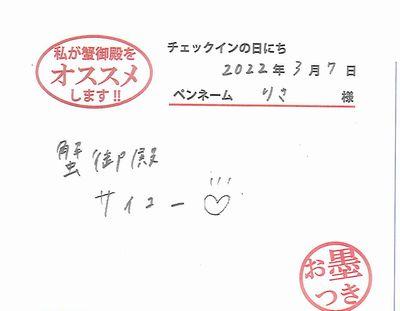 私が蟹御殿を
オススメ
します!!
チェックインの日にち
2022年3月7日
ペンネーム りさ 様
蟹御殿
サイコー♡
お墨
つき